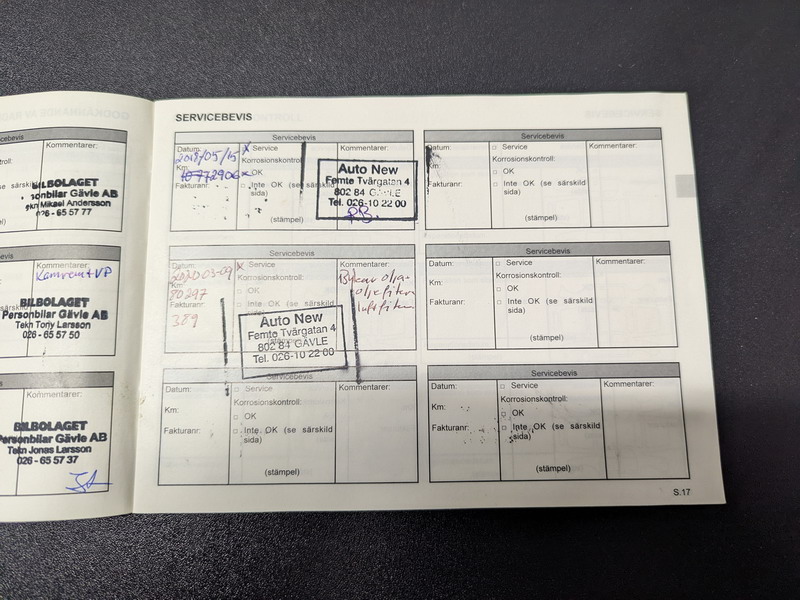 Kommentarer:
BILBOLAGET
Personbilar Gävle AB
Tekn Mikael Andersson
026 - 65 57 77
Kommentarer:
Kamrem + VP
BILBOLAGET
Personbilar Gävle AB
Tekn Tony Larsson
026 - 65 57 50
Kommentarer:
BILBOLAGET
Personbilar Gävle AB
Tekn Jonas Larsson
026 - 65 57 37
SERVICEBEVIS
Servicebevis
Datum:
2018/05/15
Km:
72906
Fakturanr:
x Service
Korrosionskontroll:
OK
Inte OK (se särskild
sida)
(stämpel)
Kommentarer:
Auto New
Femte Tvärgatan 4
802 84 GÄVLE
Tel. 026-10 22 00
Servicebevis
Datum:
Km:
Fakturanr:
Service
Korrosionskontroll:
OK
Inte OK (se särskild
sida)
(stämpel)
Kommentarer:
Servicebevis
Datum:
2020-03-09
Km:
80297
Fakturanr:
389
x Service
Korrosionskontroll:
OK
Inte OK (se särskild
sida)
Kommentarer:
Auto New
Femte Tvärgatan 4
802 84 GÄVLE
Tel. 026-10 22 00
Servicebevis
Datum:
Km:
Fakturanr:
Service
Korrosionskontroll:
OK
Inte OK (se särskild
sida)
(stämpel)
Kommentarer:
Servicebevis
Datum:
Km:
Fakturanr:
Service
Korrosionskontroll:
OK
Inte OK (se särskild
sida)
(stämpel)
Kommentarer:
Servicebevis
Datum:
Km:
Fakturanr:
Service
Korrosionskontroll:
OK
Inte OK (se särskild
sida)
(stämpel)
Kommentarer:
S.17